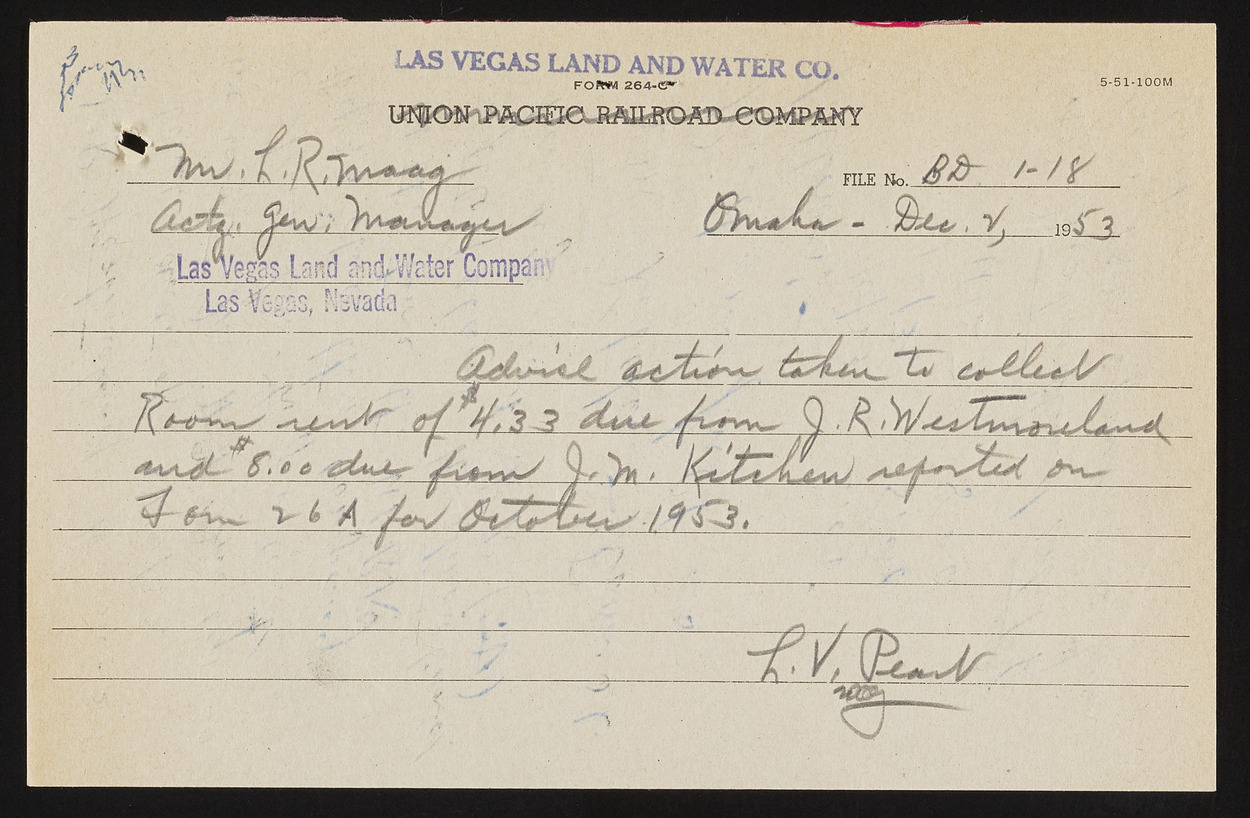 LAS VEGAS LAND AND WATER CO.
FORM 264-C
5-51-100M
UNION PACIFIC RAILROAD COMPANY
Mr. L. R. Maag
FILE No. BD 1-18
Actg. Gen. Manager
Omaha - Dec. 2, 1953
Las Vegas Land and Water Company
Las Vegas, Nevada
Advise action taken to collect
Room rent of $4.33 due from J. R. Westmoreland
and $8.00 due from J. M. Kitchen reported on
Form 26 A for October 1953.
L. V. Peart